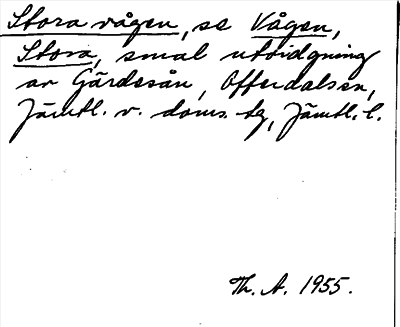 Stora vågen, se Vågen,
Stora, smal utvidgning
av Gärdesån, Offerdalsen,
Jämtl. v. doms. tg, Jämtl. l.
Th. A. 1955.